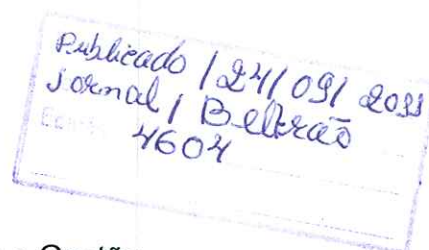 Publicado / 24/09/2011
Jornal / Beltrão
4604